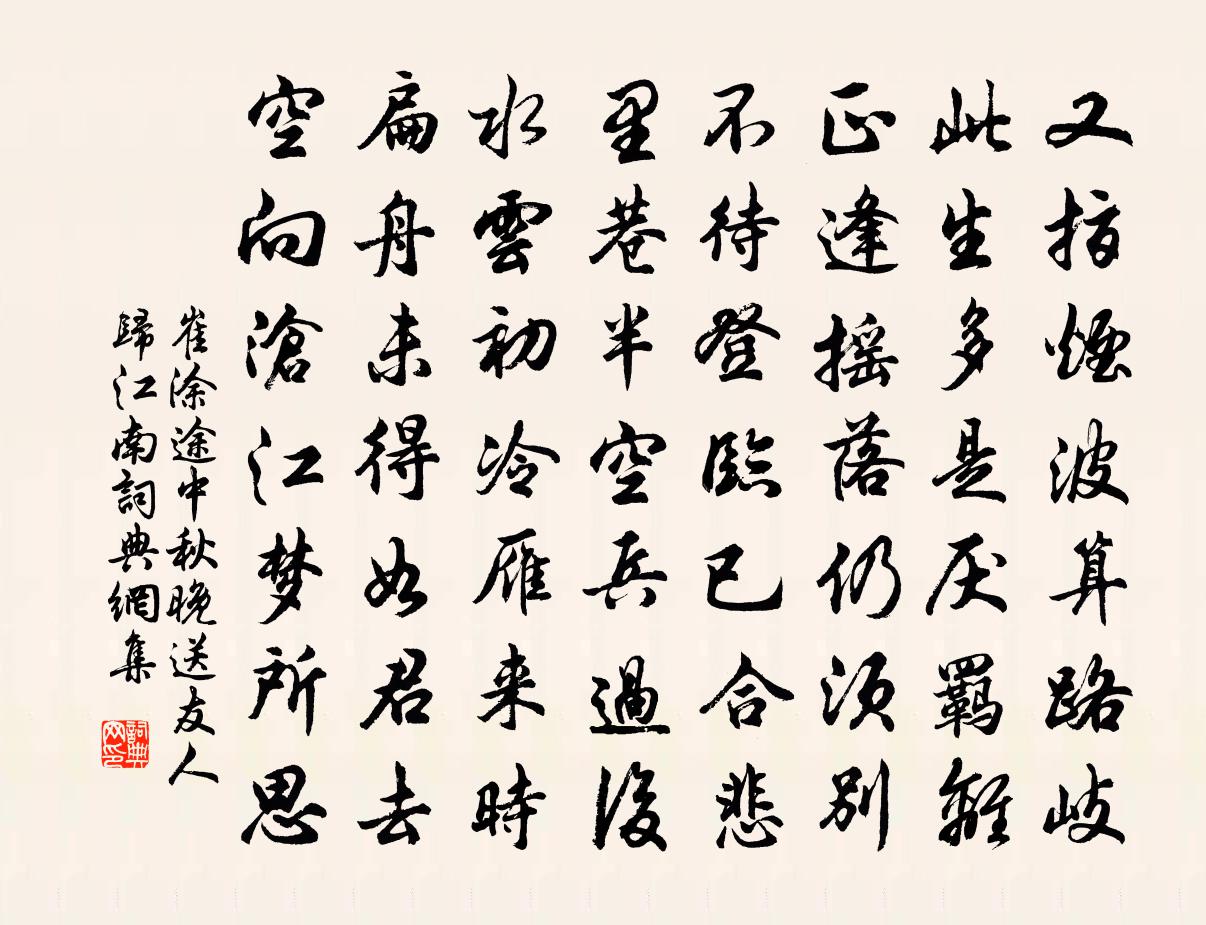 又指煙波算路岐
此生多是厌羁離
正逢摇落仍须别
不待登臨已合悲
里巷半空兵過後
水雲初冷雁来時
扁舟未得如君去
空向滄江梦所思
崔涂途中秋晚送友人
歸江南詞典網集
詞典
网印